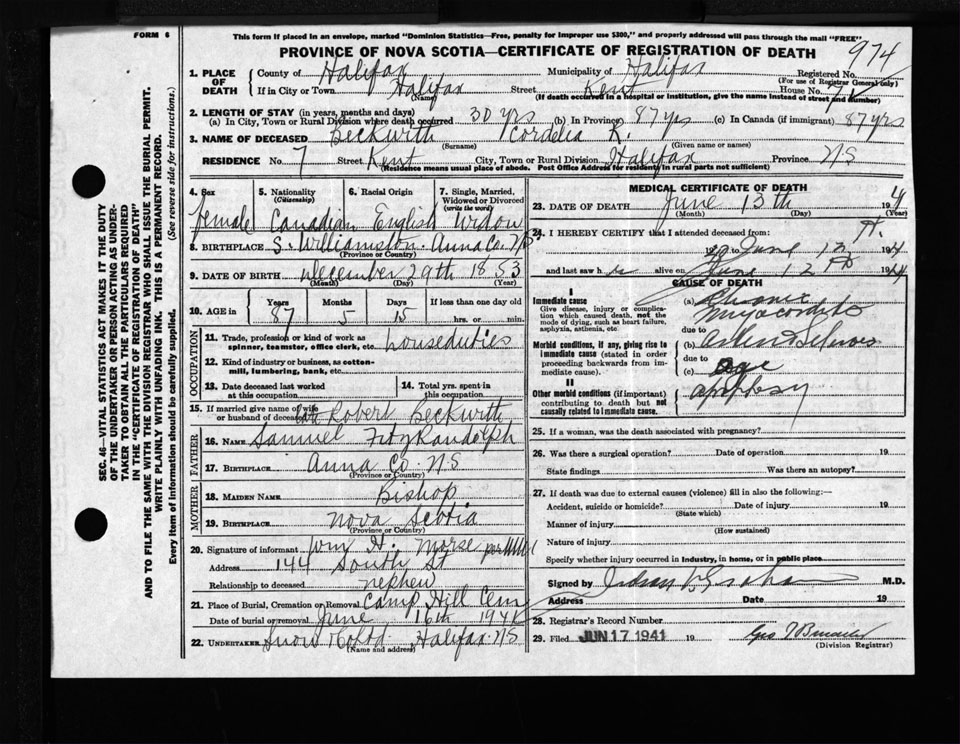 FORM 6
This form if placed in an envelope, marked "Dominion Statistics—Free, penalty for improper use $300," and properly addressed will pass through the mail "FREE"
PROVINCE OF NOVA SCOTIA—CERTIFICATE OF REGISTRATION OF DEATH
974
1. PLACE OF DEATH County of Halifax Municipality of Halifax Registered No.
(For use of Registrar General only)
If in City or Town Halifax Street Kent House No. 7
(Name) (If death occurred in a hospital or institution, give the name instead of street and number)
2. LENGTH OF STAY (in years, months and days)
(a) In City, Town or Rural Division where death occurred 30 yrs (b) In Province 87 yrs (c) In Canada (if immigrant) 87 yrs
3. NAME OF DECEASED Beckwith Cordelia R.
(Surname) (Given name or names)
RESIDENCE No. 7 Street Kent City, Town or Rural Division Halifax Province NS
(Residence means usual place of abode. Post Office Address for residents in rural parts not sufficient)
4. Sex 5. Nationality (Citizenship) 6. Racial Origin 7. Single, Married, Widowed or Divorced (write the word)
Female Canadian English Widow
8. BIRTHPLACE S. Williamston Anna Co. NS
(Province or Country)
9. DATE OF BIRTH December 29th 1853
(Month) (Day) (Year)
10. AGE in Years Months Days If less than one day old
87 5 15 hrs. or min.
OCCUPATION
11. Trade, profession or kind of work as spinner, teamster, office clerk, etc. houseduties
12. Kind of industry or business, as cotton-mill, lumbering, bank, etc.
13. Date deceased last worked at this occupation
14. Total yrs. spent in this occupation
15. If married give name of wife or husband of deceased Robert Beckwith
FATHER
16. NAME Samuel FitzRandolph
17. BIRTHPLACE Anna Co NS
(Province or Country)
MOTHER
18. MAIDEN NAME Bishop
19. BIRTHPLACE Nova Scotia
(Province or Country)
20. Signature of informant Wm H. Morse per
Address 144 South St
Relationship to deceased nephew
21. Place of Burial, Cremation or Removal Camp Hill Cem
Date of burial or removal June 16th 1941
22. UNDERTAKER Snow & Co Ltd. Halifax NS
(Name and address)
MEDICAL CERTIFICATE OF DEATH
23. DATE OF DEATH June 13th 194
(Month) (Day) (Year)
24. I HEREBY CERTIFY that I attended deceased from:
19 to June 12 194
and last saw h alive on June 12th 194
CAUSE OF DEATH
I
Immediate cause
Give disease, injury or complication which caused death, not the mode of dying, such as heart failure, asphyxia, asthenia, etc.
(a) Chronic Myocarditis
due to
Morbid conditions, if any, giving rise to immediate cause (stated in order proceeding backwards from immediate cause).
(b)
due to
(c) age
II
Other morbid conditions (if important) contributing to death but not causally related to immediate cause.
25. If a woman, was the death associated with pregnancy?
26. Was there a surgical operation? Date of operation 19
State findings Was there an autopsy?
27. If death was due to external causes (violence) fill in also the following:—
Accident, suicide or homicide? Date of injury 19
(State which)
Manner of injury
(How sustained)
Nature of injury
Specify whether injury occurred in industry, in home, or in public place
Signed by M.D.
Address Date 19
28. Registrar's Record Number
29. Filed JUN 17 1941 19
(Division Registrar)
SEC. 46—VITAL STATISTICS ACT MAKES IT THE DUTY
OF THE UNDERTAKER OR PERSON ACTING AS UNDER-
TAKER TO OBTAIN ALL THE PARTICULARS REQUIRED
IN THE "CERTIFICATE OF REGISTRATION OF DEATH"
AND TO FILE THE SAME WITH THE DIVISION REGISTRAR WHO SHALL ISSUE THE BURIAL PERMIT.
WRITE PLAINLY WITH UNFADING INK. THIS IS A PERMANENT RECORD.
Every item of information should be carefully supplied. (See reverse side for instructions.)